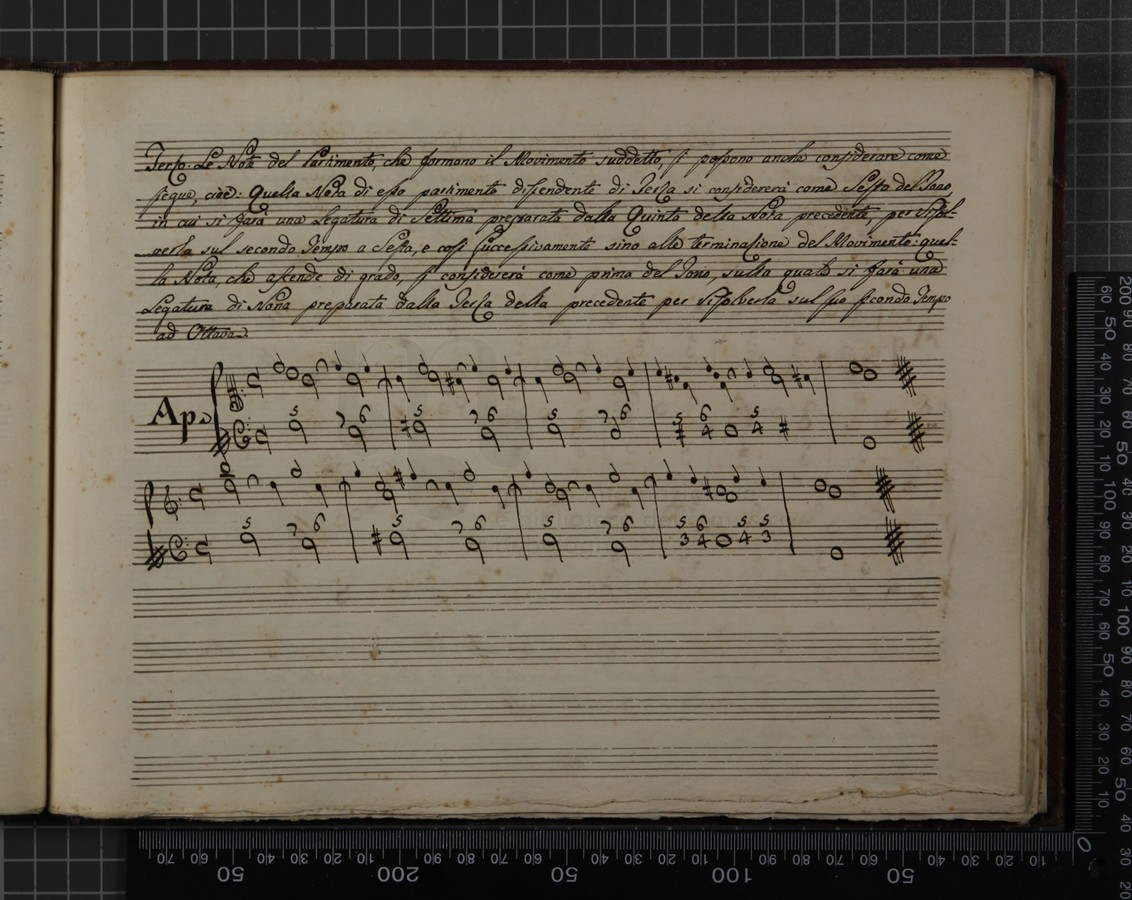 Terzo. Le Note del Partimento, che formano il Movimento suddetto, si possono anche considerare come
siegue, cioè: Quella Nota di esso partimento discendente di Terza si considererà come Sesta del Tono,
in cui si farà una Legatura di Settima preparata dalla Quinta della Nota precedente, per risol-
verla sul secondo Tempo a Sesta, e così successivamente sino alla terminazione del Movimento: quel-
la Nota, che ascende di grado, si considererà come prima del Tono, sulla quale si farà una
Legatura di Nona preparata dalla Terza della precedente per risolverla sul suo secondo Tempo
ad Ottava.
Ap.
5 7 6 5 7 6 5 7 6 5 6 4 5 4
5 7 6 5 7 6 5 7 6 5 3 6 4 5 4 5 3